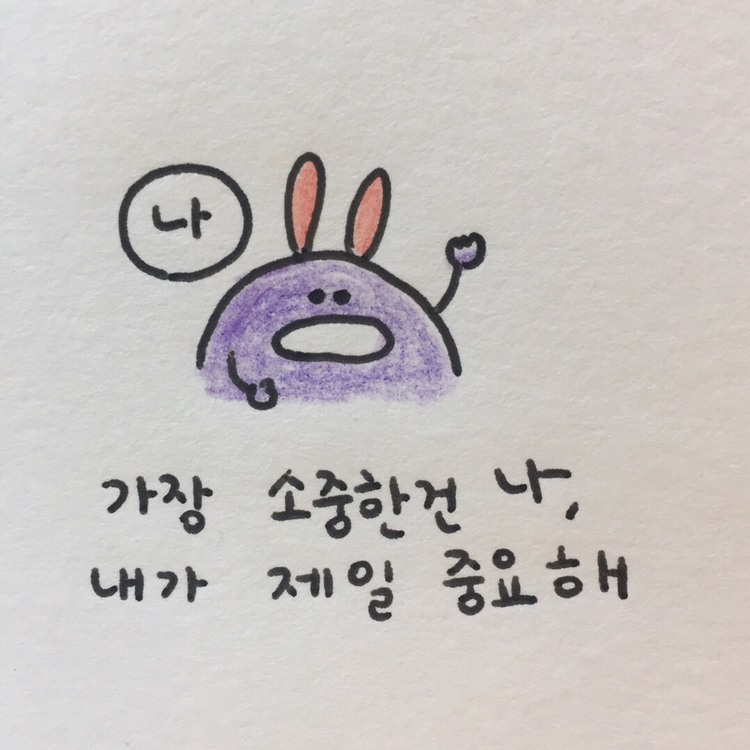 나
가장 소중한건 나,
내가 제일 중요해